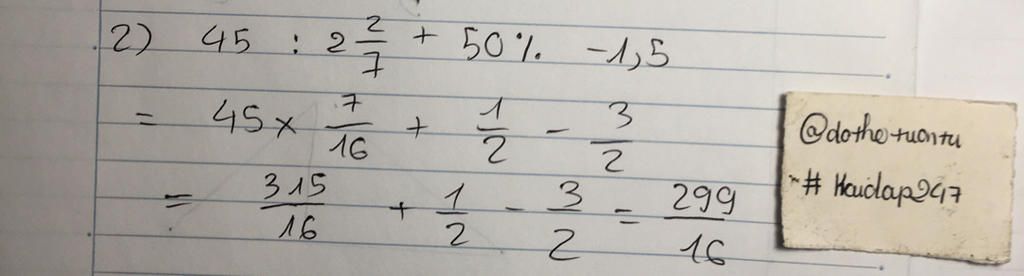 2) 45 : 2 2/7 + 50% - 1,5
= 45 x 7/16 + 1/2 - 3/2
= 315/16 + 1/2 - 3/2 = 299/16
@dothetuantu
# Hoidap247